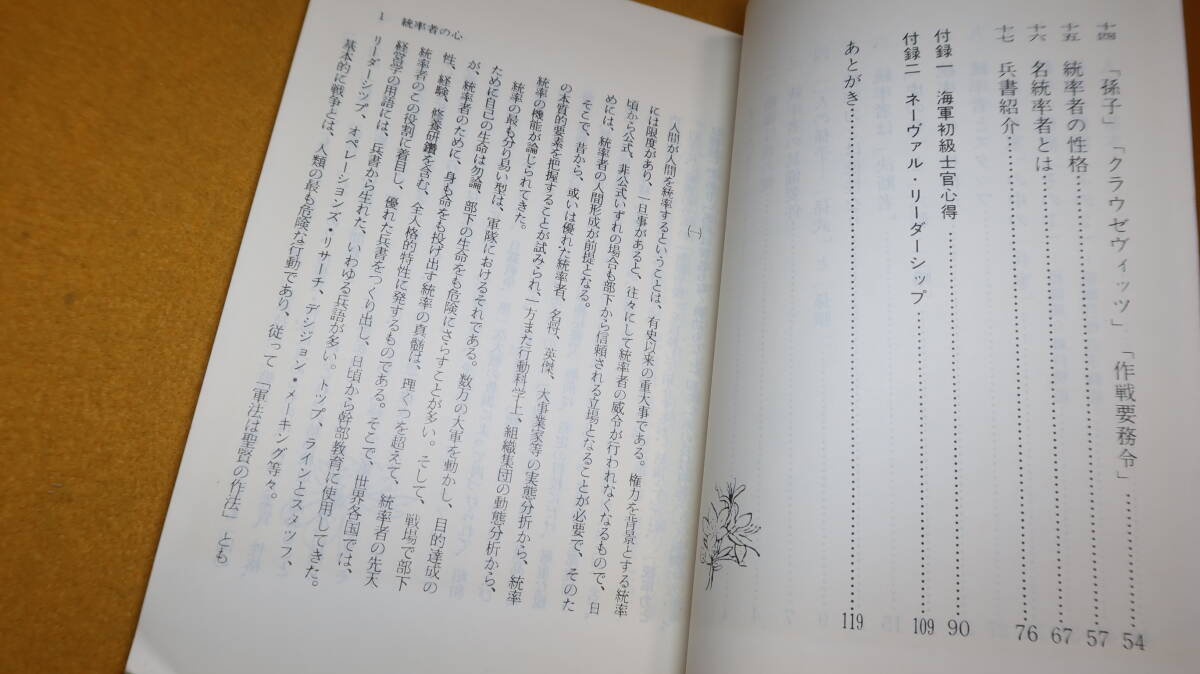 十四 「孫子」「クラウゼヴィッツ」「作戦要務令」……54
十五 統率者の性格……57
十六 名統率者とは……67
十七 兵書紹介……76
付録一 海軍初級士官心得……90
付録二 ネーヴァル・リーダーシップ……109
あとがき……119
(一)
人間が人間を統率するということは、有史以来の重大事である。権力を背景とする統率
には限度があり、一旦事があると、往々にして統率者の威令が行われなくなるもので、日
頃から公式、非公式いずれの場合も部下から信頼される立場となることが必要で、そのた
めには、統率者の人間形成が前提となる。
そこで、昔から、或いは優れた統率者、名将、英傑、大事業家等の実態分析から、統率
の本質的要素を把握することが試みられ、一方また行動科学上、組織集団の動態分析から、
統率の機能が論じられてきた。
統率の最も分り易い型は、軍隊におけるそれである。数万の大軍を動かし、目的達成の
ために自己の生命は勿論、部下の生命をも危険にさらすことが多い。そして、戦場で部下
が、統率者のために、身も命をも投げ出す統率の真髄は、理くつを超えて、統率者の先天
性、経験、修養研鑽を含む、全人格的特性に発するものである。そこで、世界各国では、
統率者のこの役割に着目し、優れた兵書をつくり出し、日頃から幹部教育に使用してきた。
経営学の用語には、兵書から生れた、いわゆる兵語が多い。トップ、ラインとスタッフ、
リーダーシップ、オペレーションズ・リサーチ、デシジョン・メーキング等々。
基本的に戦争とは、人類の最も危険な行動であり、従って「軍法は聖賢の作法」とも
1 統率者の心